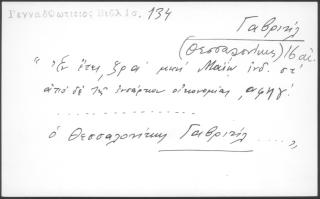 Γενναδ&ωτισιος Βιβλιο. 134
Γαβριήλ
(Θεσσαλονίκης) 16 αἰ.
“ Ἐν ἔτει, ζρα' μηνὶ Μαΐῳ ἰνδ. στ'
ἀπὸ δὲ τῆς ἐνσάρκου οἰκονομίας, αφηγ'.
..................
ὁ Θεσσαλονίκης Γαβριήλ ..... „